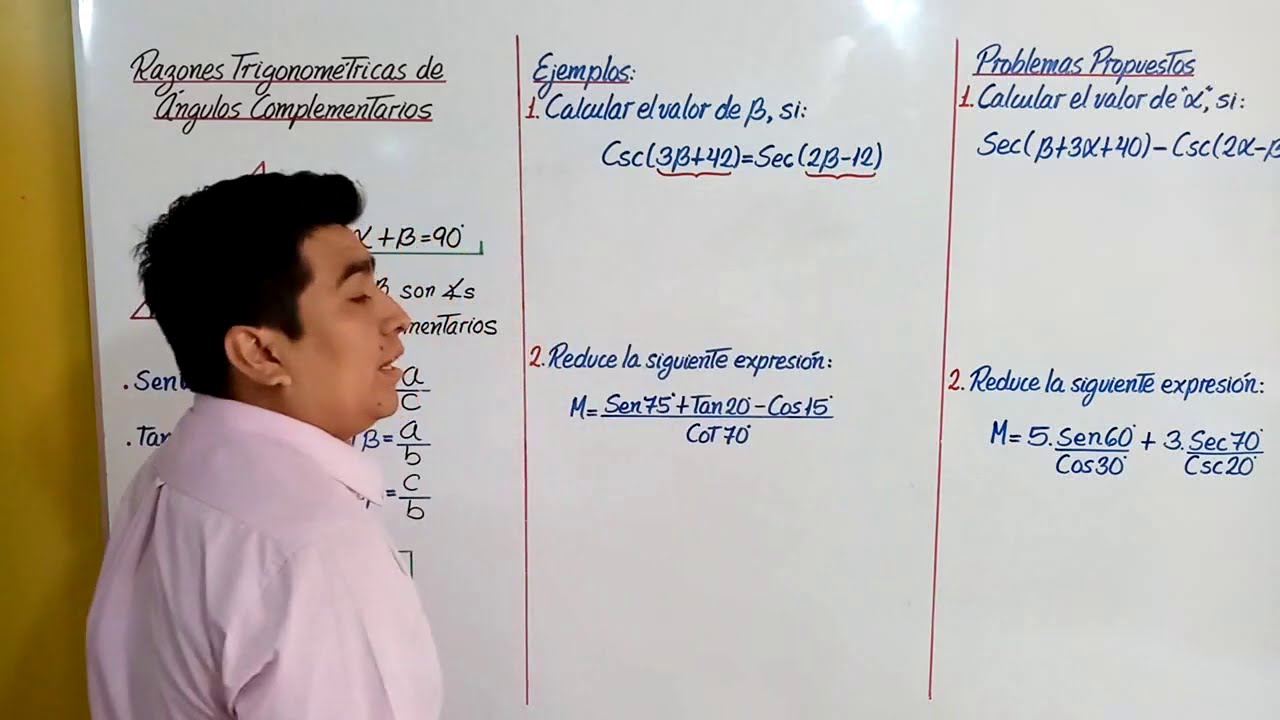 Razones Trigonometricas de
Ángulos Complementarios
α+β=90°
β son ∡s
mentarios
. Sen
a/c
. Tan
β= a/b
= c/b
Ejemplos:
1. Calcular el valor de β, si:
Csc(3β+42)=Sec(2β-12)
2. Reduce la siguiente expresión:
M= Sen75°+Tan20°-Cos15°
Cot70°
Problemas Propuestos
1. Calcular el valor de "α", si:
Sec(β+3α+40)-Csc(2α-β
2. Reduce la siguiente expresión:
M= 5. Sen60°/Cos30° + 3. Sec70°/Csc20°